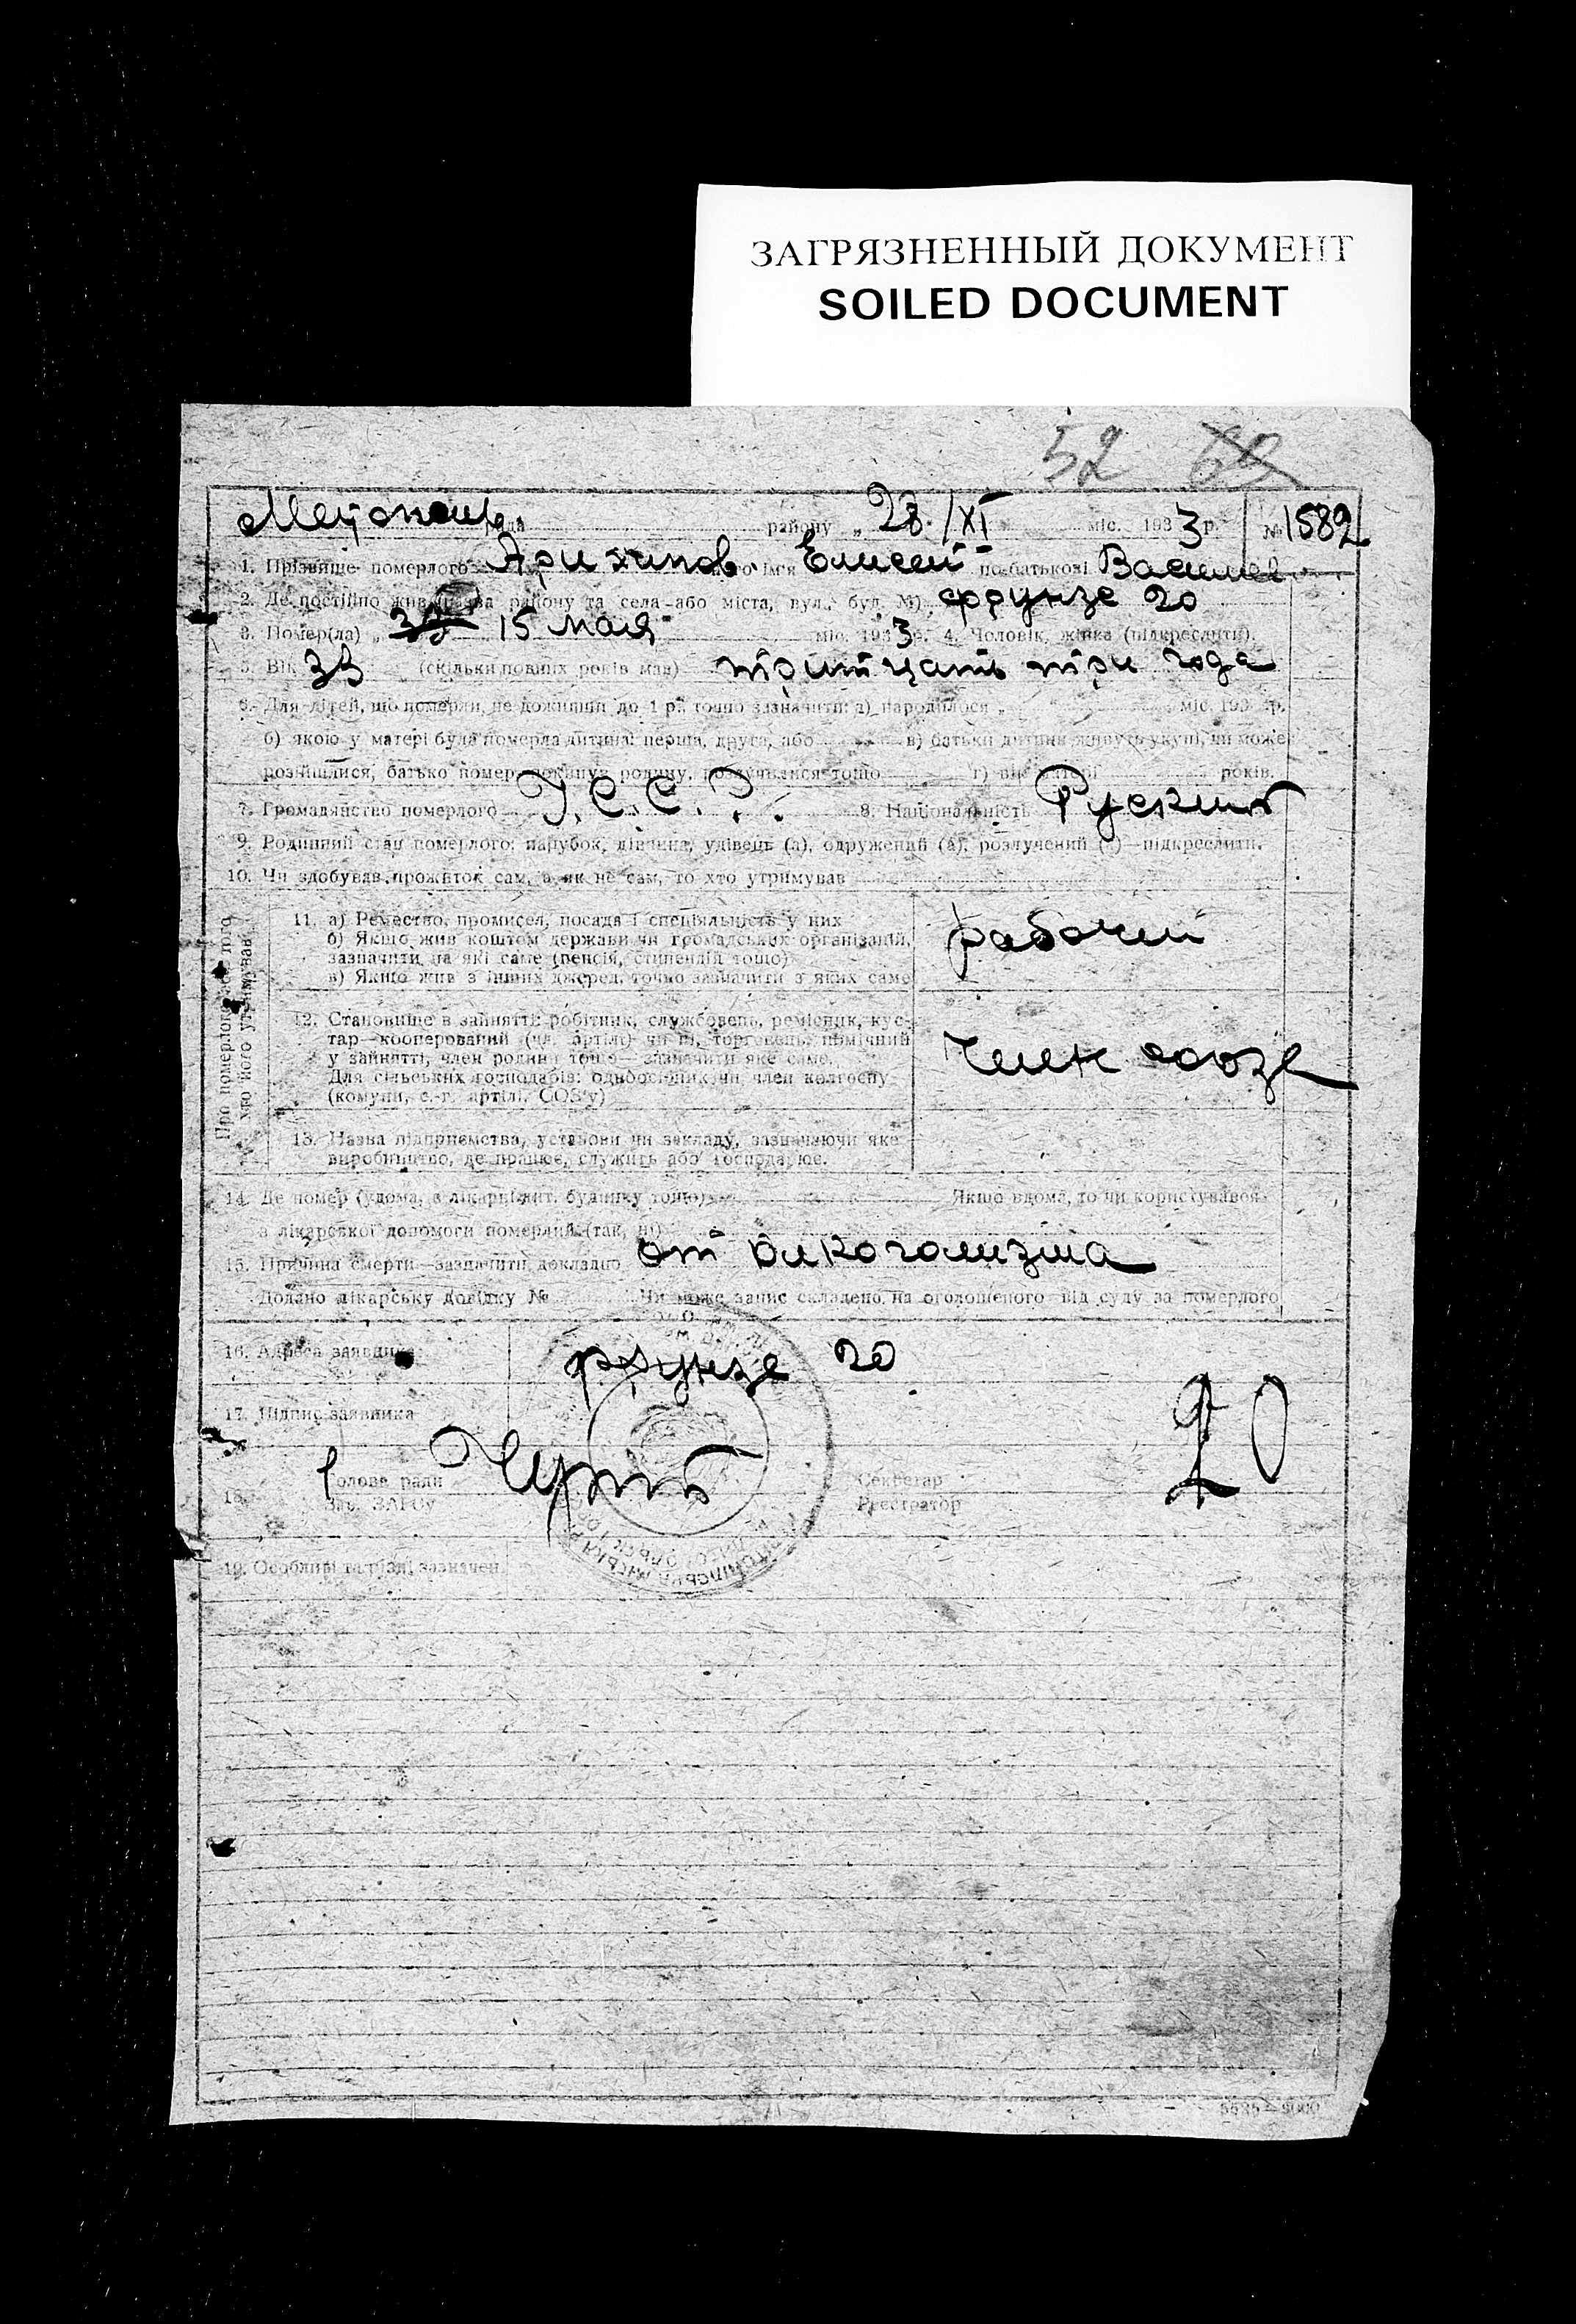 ЗАГРЯЗНЕННЫЙ ДОКУМЕНТ
SOILED DOCUMENT
52 62
рада району „ 28/XI міс. 1933 р. № 1582
1. Прізвище померлого його ім'я Елисей по батькові Василев.
2. Де постійно жив (назва району та села або міста, вул., буд. №) Фрунзе 20
3. Помер(ла) „ 15 мая міс. 1933 р. 4. Чоловік, жінка (підкреслити).
5. Вік 33 (скільки повних років мав) тритцать три года
6. Для дітей, що померли, не доживши до 1 р., точно зазначити: а) народилося „ " міс. 193 р.
б) якою у матері була померла дитина: перша, друга, або в) батьки дитини живуть укупі, чи може
розійшлися, батько помер, покинув родину, розлучилися тощо г) вік матері років.
7. Громадянство померлого У.С.С.Р. 8. Національність Руский
9. Родинний стан померлого: парубок, дівчина, удівець (а), одружений (а), розлучений (а)—підкреслити.
10. Чи здобував прожиток сам, а як не сам, то хто утримував
Про померлого або того
хто його утримував
11. а) Ремество, промисел, посада і спеціяльність у них
б) Якщо жив коштом держави чи громадських організацій,
зазначити на які саме (пенсія, стипендія тощо)
в) Якщо жив з інших джерел, точно зазначити з яких саме
рабочий
12. Становище в занятті: робітник, службовець, ремісник, кус-
тар—кооперований (чл. артілі) чи ні, торговець, помічний
у занятті, член родини тощо—зазначити яке саме.
Для сільських господарів: одноосібник чи член колгоспу
(комуни, с.-г. артілі, СОЗ'у)
член союза
13. Назва підприємства, установи чи закладу, зазначаючи яке
виробництво, де працює, служить або господарює.
14. Де помер (удома, в лікарні, вит. будинку тощо) Якщо вдома, то чи користувався
з лікарської допомоги померлий (так, ні)
15. Причина смерти—зазначити докладно от алкоголизма
Додано лікарську довідку № Чи може запис складено на оголошеного від суду за померлого
16. Адреса заявника Фрунзе 20
17. Підпис заявника
18. Голова ради
Зав. ЗАГСу
Секретар
Реєстратор
19. Особливі та різні зазначен.